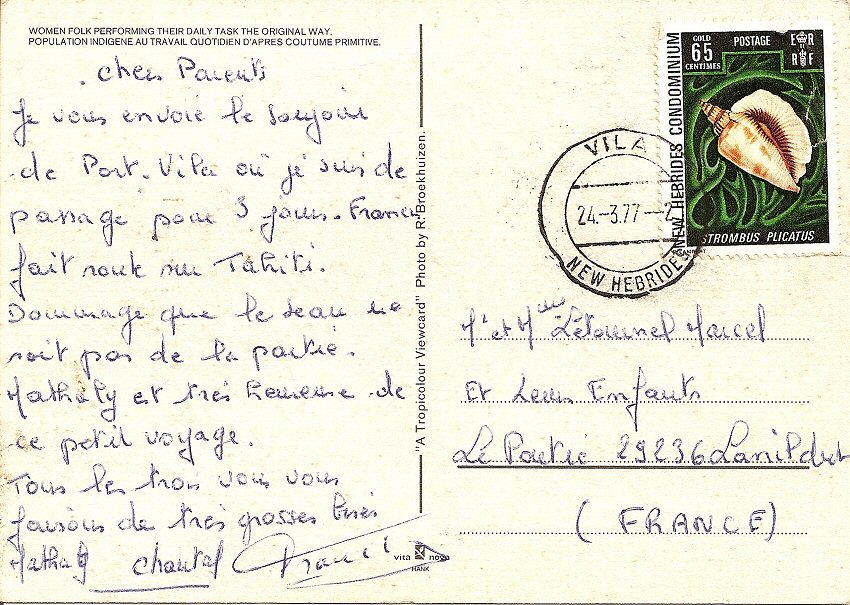 WOMEN FOLK PERFORMING THEIR DAILY TASK THE ORIGINAL WAY.
POPULATION INDIGENE AU TRAVAIL QUOTIDIEN D'APRES COUTUME PRIMITIVE.
chers Parents
Je vous envoie le bonjour
de Port-Vila où je suis de
passage pour 3 jours. Francis
fait route sur Tahiti.
Dommage que le beau ne
soit pas de la partie.
Nathaly est très heureuse de
ce petit voyage.
Tous les trois vous vous
faisons de très grosses bises
Nathaly Chantal Francis
"A Tropicolour Viewcard" Photo by R. Broekhuizen.
vita nova
HANK
GOLD
65
CENTIMES
POSTAGE
E R
R F
NEW HEBRIDES CONDOMINIUM
STROMBUS PLICATUS
VILA
24.-3.77
NEW HEBRIDES
Mr et Mme Létournel Marcel
Et Leurs Enfants
29236 Lanildut
(FRANCE)